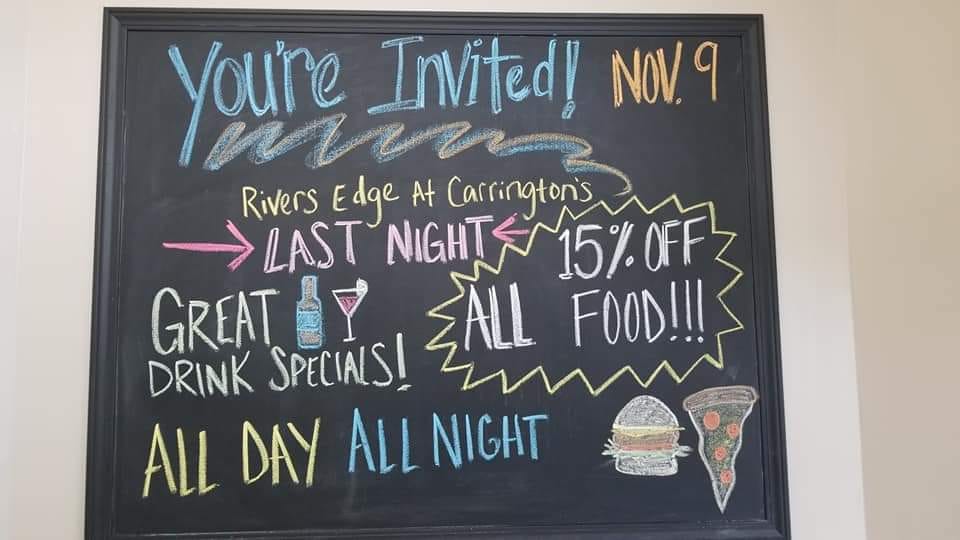 You're Invited! NOV. 9
Rivers Edge At Carrington's
LAST NIGHT
15% OFF
ALL FOOD!!!
GREAT
DRINK SPECIALS!
ALL DAY ALL NIGHT